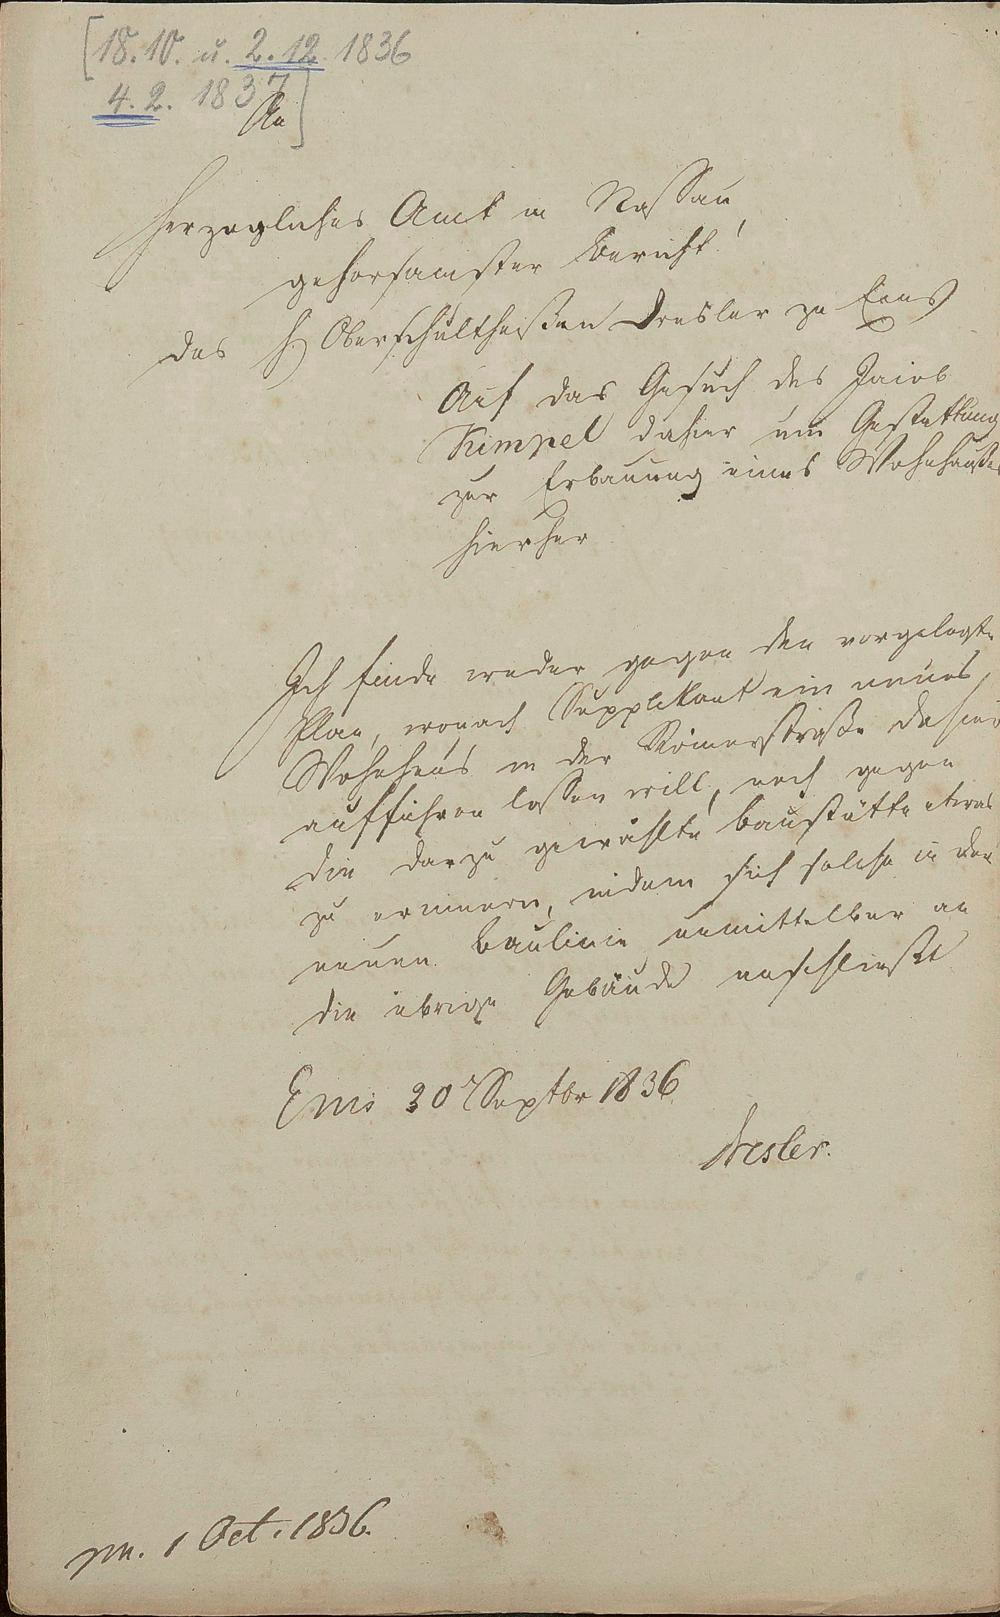 [18.10. u. 2.12. 1836
4.2. 1837]
An
Herzogliches Amt in Nassau,
gehorsamster Bericht!
des H Oberschultheißen Dresler zu Ems
Auf das Gesuch des Jacob
Kimpel dahier um Gestattung
zur Erbauung eines Wohnhauses
hierher
Ich finde weder gegen den vorgelegten
Plan, wonach Supplikant ein neues
Wohnhaus in der Römerstraße dahier
aufführen lassen will, noch gegen
die darzu gewählte Baustätte etwas
zu erinnern, indem sich solche in der
neuen Baulinie unmittelbar an
die übrige Gebäude anschließt
Ems 30 Septbr 1836
Dresler.
pn. 1 Oct. 1836.